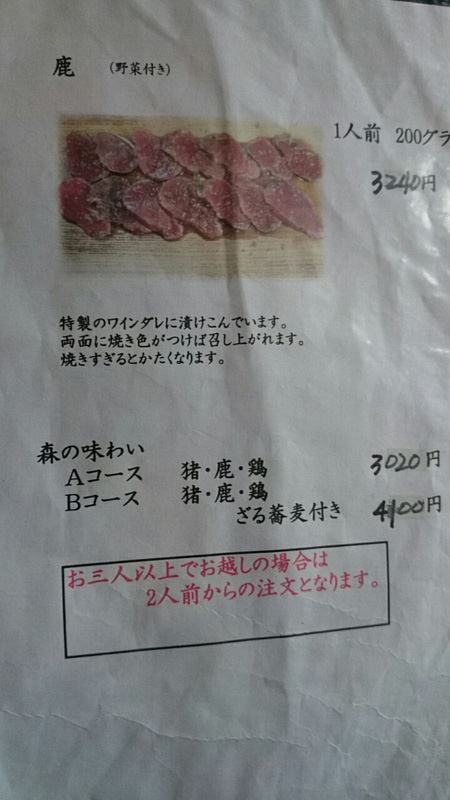 鹿 (野菜付き)
1人前 200グラ
3240円
特製のワインダレに漬けこんでいます。
両面に焼き色がつけば召し上がれます。
焼きすぎるとかたくなります。
森の味わい
Aコース 猪・鹿・鶏 3020円
Bコース 猪・鹿・鶏
ざる蕎麦付き 4100円
お三人以上でお越しの場合は
2人前からの注文となります。